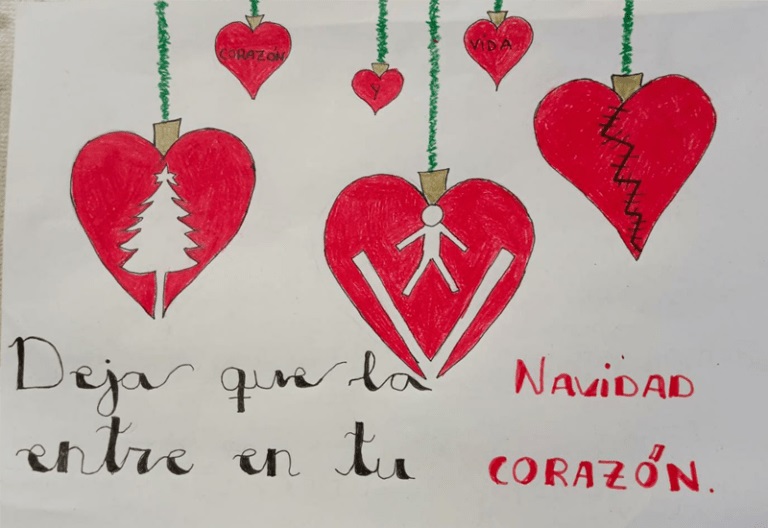 CORAZÓN
Y
VIDA
Deja que la NAViDAD
entre en tu CORAZÓN.